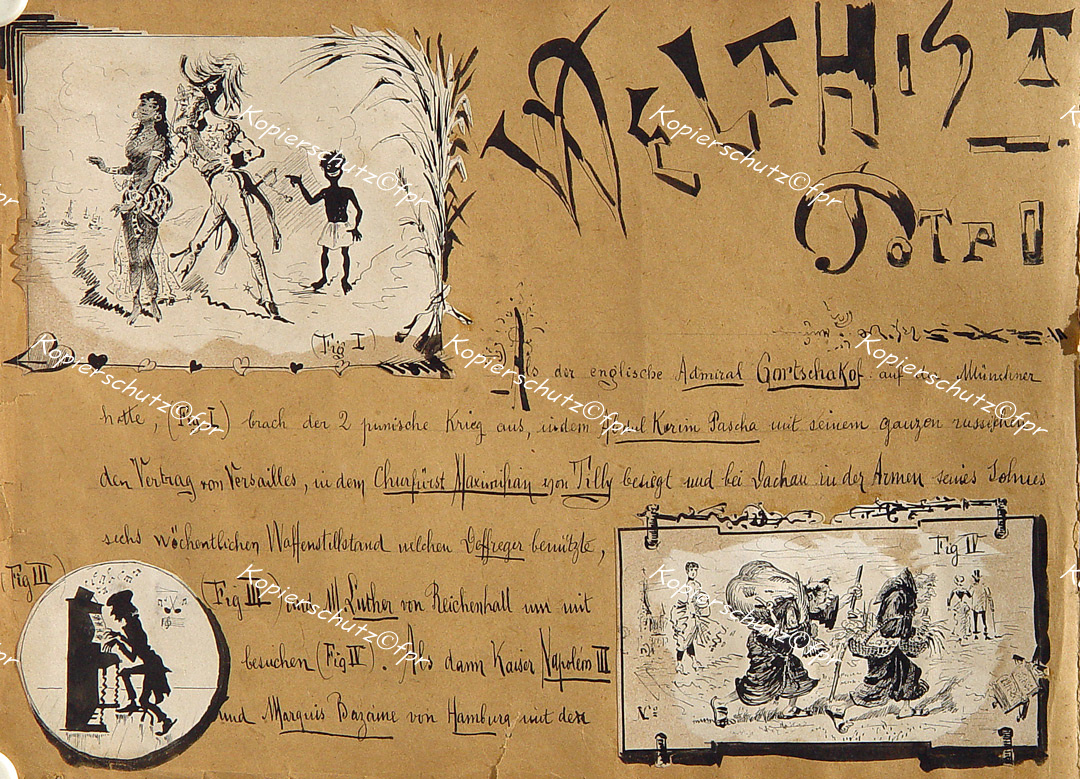 WELTHIST
POTPO
(Fig I)
Als der englische Admiral Gortschakof auf der Münchner
hatte, (Fig I) brach der 2 punische Krieg aus, indem Abdul Kerim Pascha mit seinem ganzen russischen
den Vertrag von Versailles, in dem Churfürst Maximilian von Tilly besiegt und bei Dachau in der Armen seines Sohnes
sechs wöchentlichen Waffenstillstand welchen Deffreger benützte,
(Fig III)
(Fig III) M. Luther von Reichenhall um mit
besuchen (Fig IV). Als dann Kaiser Napoleon III
und Marquis Bazaine von Hamburg mit den
Fig IV
Kopierschutz©fpr
Kopierschutz©fpr
Kopierschutz©fpr
Kopierschutz©fpr
Kopierschutz©fpr
Kopierschutz©fpr
Kopierschutz©fpr
Kopierschutz©fpr